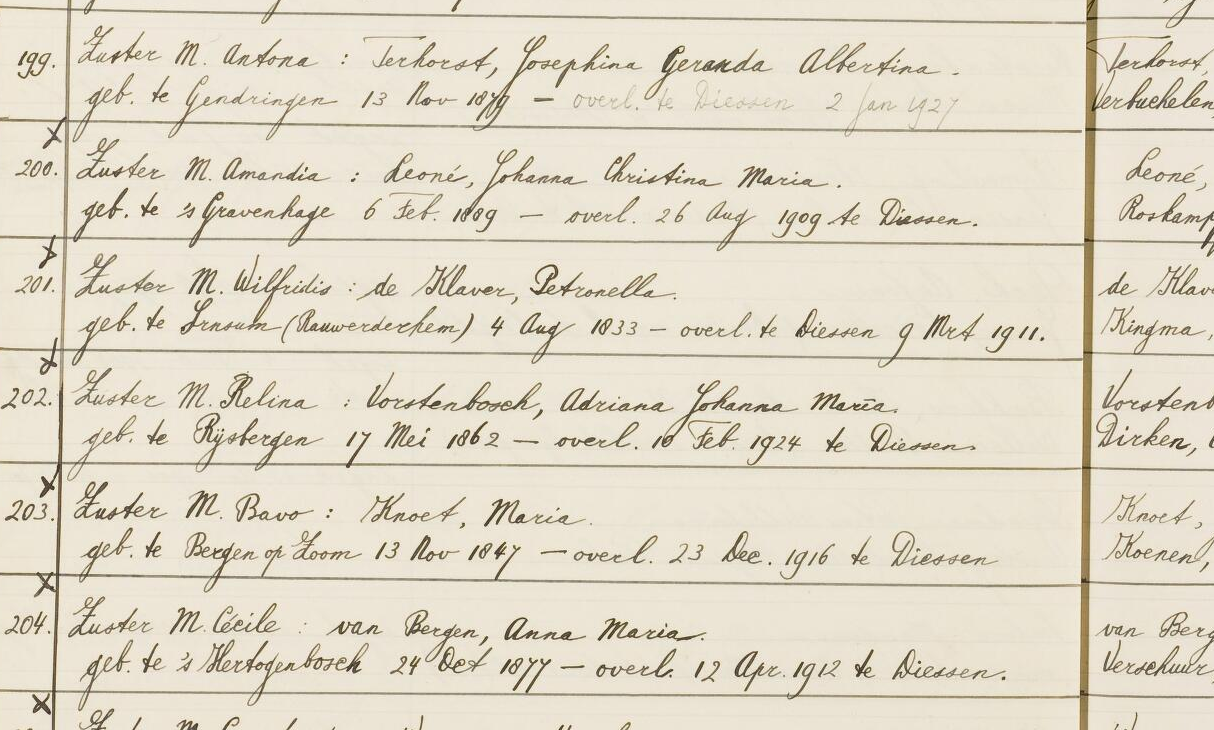 199. Zuster M. Antona : Terhorst, Josephina Geranda Albertina. Terhorst,
geb. te Gendringen 13 Nov 1879 – overl. te Diessen 2 Jan 1927 Verbuchelen,
200. Zuster M. Amandia : Leoné, Johanna Christina Maria. Leoné,
geb. te 's Gravenhage 6 Feb. 1889 – overl. 26 Aug 1909 te Diessen. Roskamp
201. Zuster M. Wilfridis : de Klaver, Petronella. de Klav
geb. te Irnsum (Rauwerderhem) 4 Aug 1833 – overl. te Diessen 9 Mrt 1911. Kingma,
202. Zuster M. Relina : Vorstenbosch, Adriana Johanna Maria. Vorstenb
geb. te Rijsbergen 17 Mei 1862 – overl. 10 Feb. 1924 te Diessen. Dirken,
203. Zuster M. Bavo : Knoet, Maria. Knoet,
geb. te Bergen op Zoom 13 Nov 1847 – overl. 23 Dec. 1916 te Diessen Koenen,
204. Zuster M. Cécile : van Bergen, Anna Maria. van Berg
geb. te 's Hertogenbosch 24 Oct 1877 – overl. 12 Apr. 1912 te Diessen. Verschuur